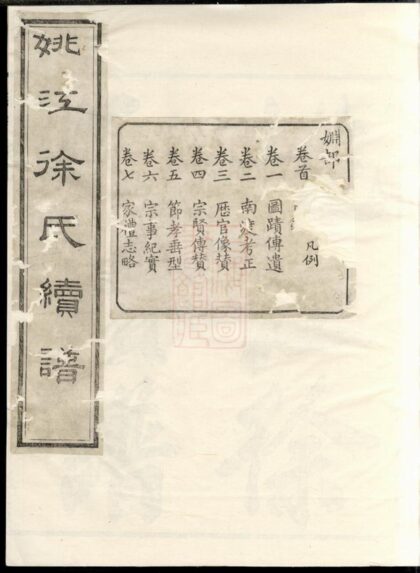 姚江徐氏續譜
卷首 凡例
卷一 圖蹟傳遺
卷二 南遷考正
卷三 歷官像贊
卷四 宗賢傳贊
卷五 節孝垂型
卷六 宗事紀實
卷七 家禮志略